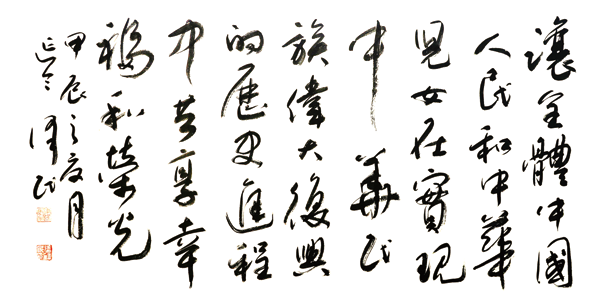 讓全體中國
人民和中華
兒女在實現
中華民
族偉大復興
的歷史進程
中共享幸
福和榮光
甲辰之夏月
延令